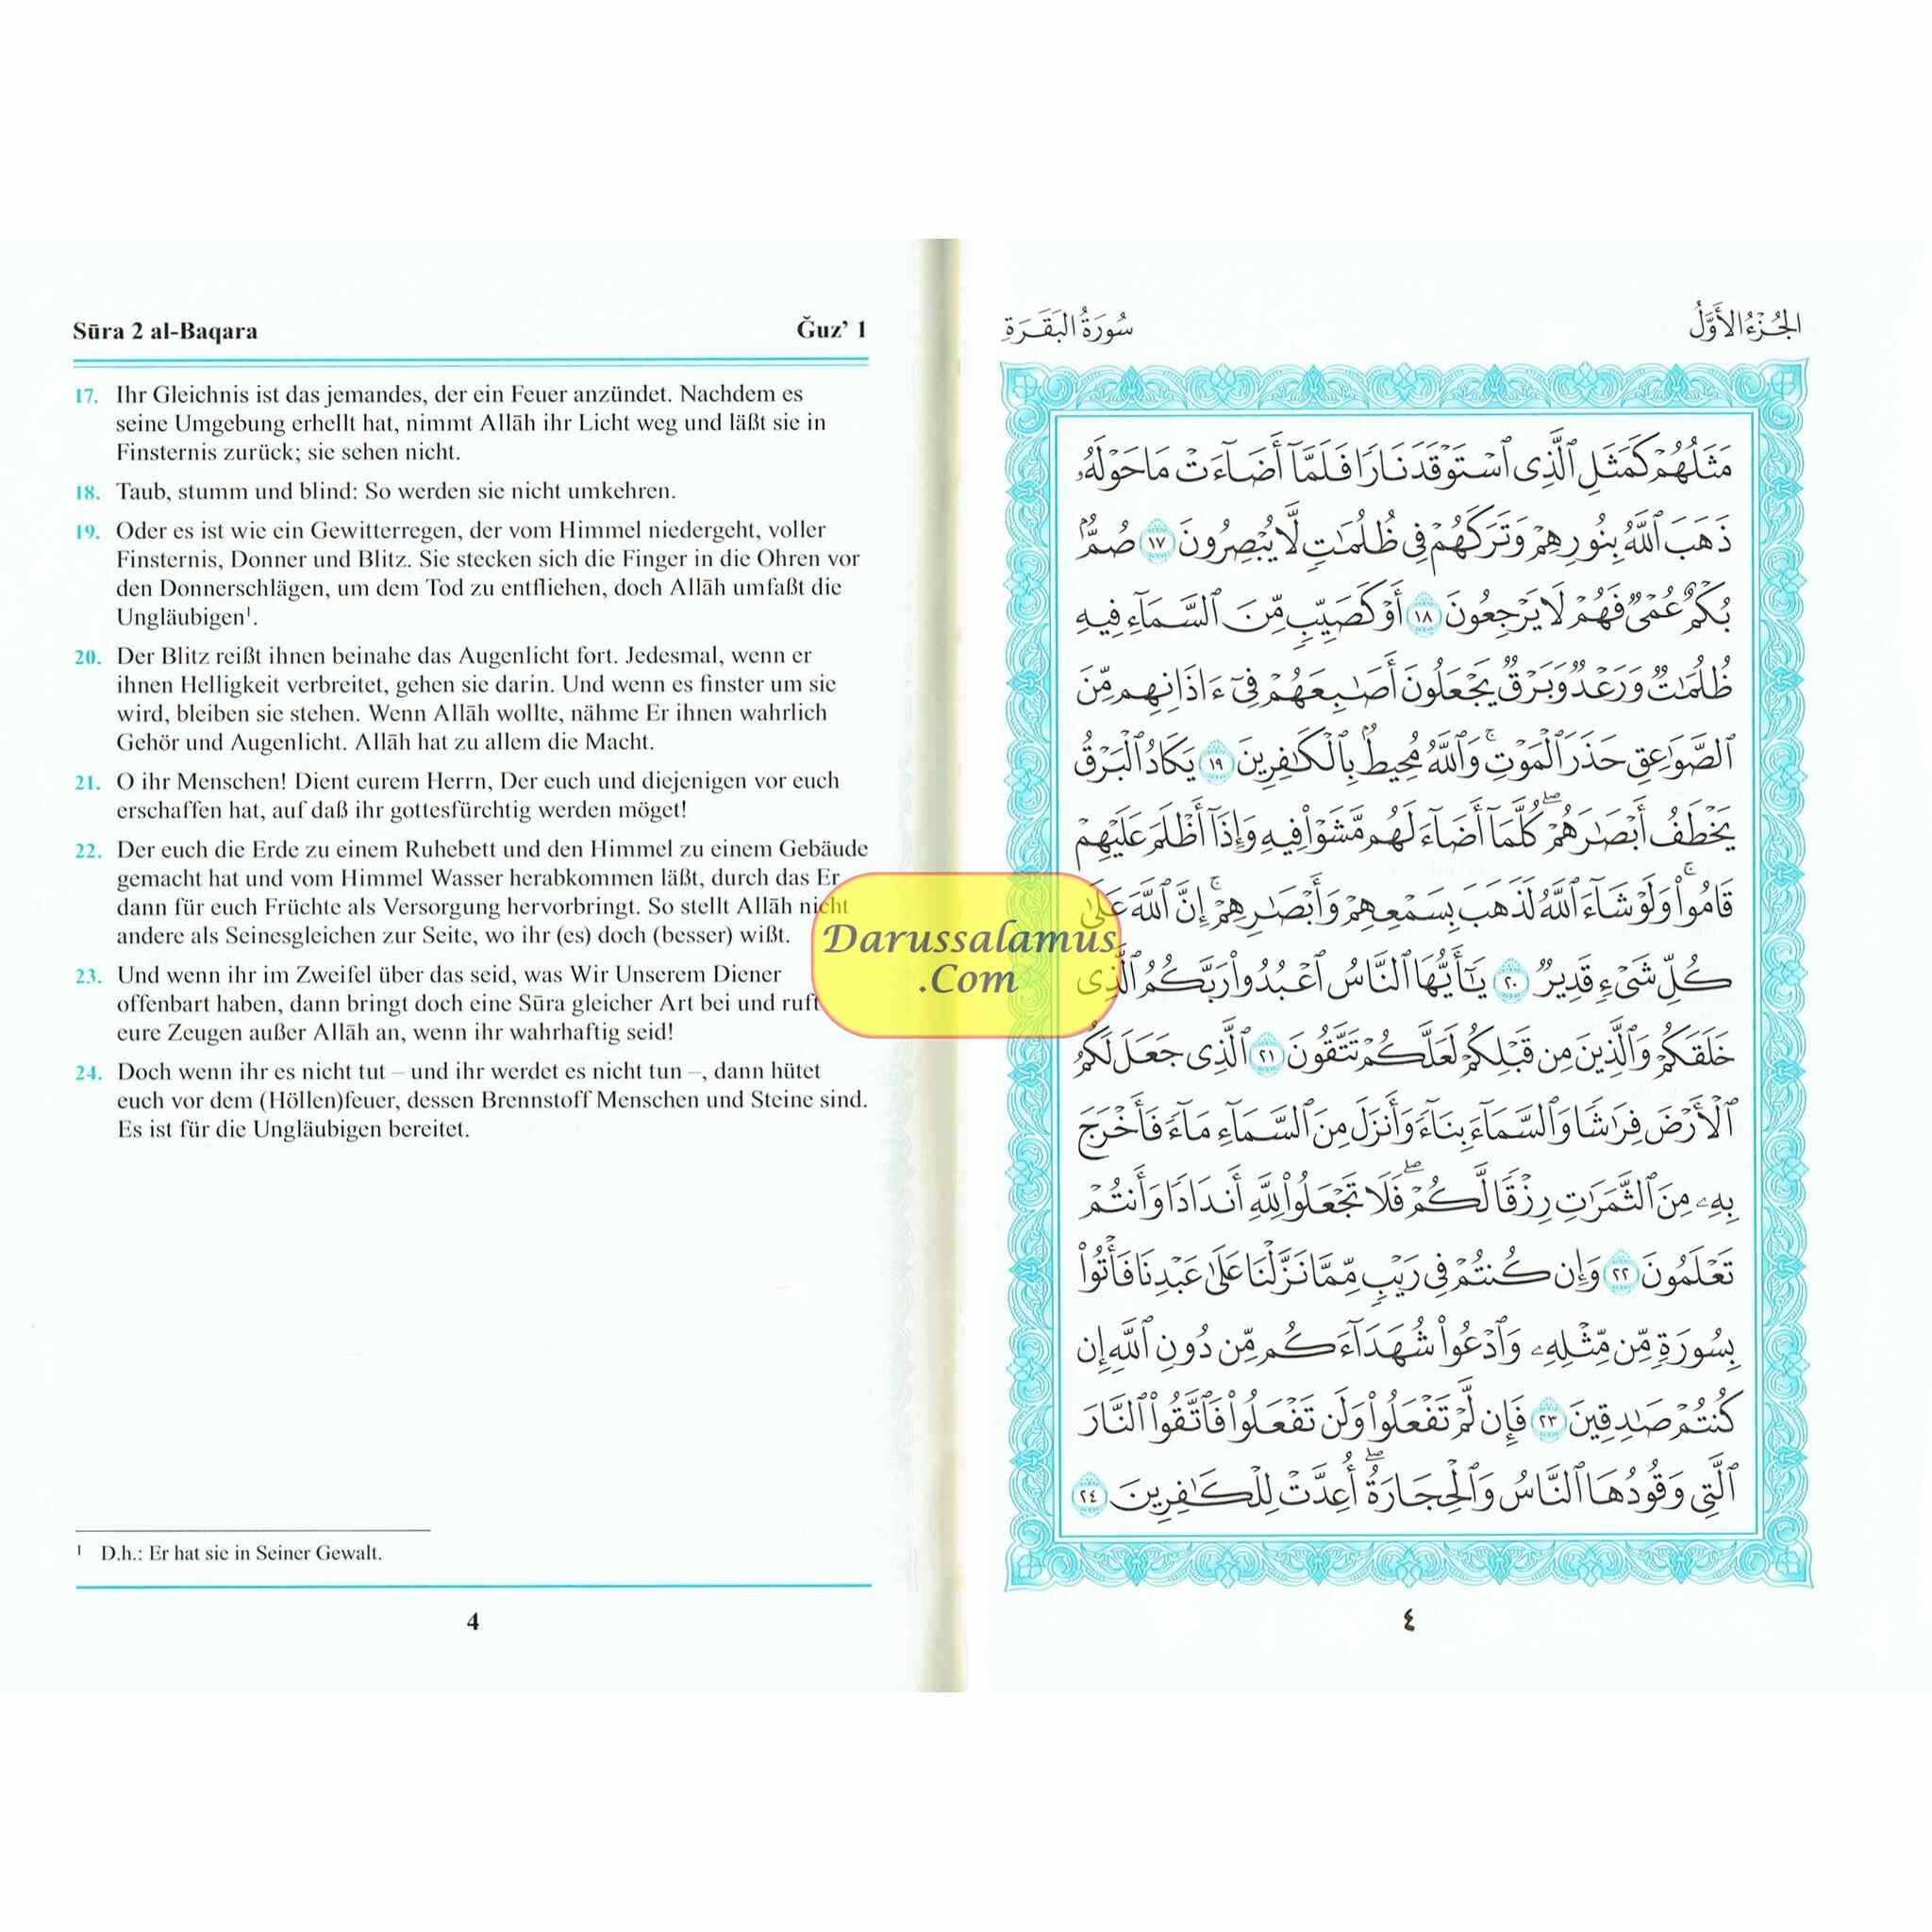 Sūra 2 al-Baqara Ǧuz’ 1
17. Ihr Gleichnis ist das jemandes, der ein Feuer anzündet. Nachdem es
seine Umgebung erhellt hat, nimmt Allāh ihr Licht weg und läßt sie in
Finsternis zurück; sie sehen nicht.
18. Taub, stumm und blind: So werden sie nicht umkehren.
19. Oder es ist wie ein Gewitterregen, der vom Himmel niedergeht, voller
Finsternis, Donner und Blitz. Sie stecken sich die Finger in die Ohren vor
den Donnerschlägen, um dem Tod zu entfliehen, doch Allāh umfaßt die
Ungläubigen¹.
20. Der Blitz reißt ihnen beinahe das Augenlicht fort. Jedesmal, wenn er
ihnen Helligkeit verbreitet, gehen sie darin. Und wenn es finster um sie
wird, bleiben sie stehen. Wenn Allāh wollte, nähme Er ihnen wahrlich
Gehör und Augenlicht. Allāh hat zu allem die Macht.
21. O ihr Menschen! Dient eurem Herrn, Der euch und diejenigen vor euch
erschaffen hat, auf daß ihr gottesfürchtig werden möget!
22. Der euch die Erde zu einem Ruhebett und den Himmel zu einem Gebäude
gemacht hat und vom Himmel Wasser herabkommen läßt, durch das Er
dann für euch Früchte als Versorgung hervorbringt. So stellt Allāh nicht
andere als Seinesgleichen zur Seite, wo ihr (es) doch (besser) wißt.
23. Und wenn ihr im Zweifel über das seid, was Wir Unserem Diener
offenbart haben, dann bringt doch eine Sūra gleicher Art bei und ruft
eure Zeugen außer Allāh an, wenn ihr wahrhaftig seid!
24. Doch wenn ihr es nicht tut – und ihr werdet es nicht tun –, dann hütet
euch vor dem (Höllen)feuer, dessen Brennstoff Menschen und Steine sind.
Es ist für die Ungläubigen bereitet.
¹ D.h.: Er hat sie in Seiner Gewalt.
4
Darussalamus
.Com
الجُزْءُ الأَوَّلُ سُورَةُ البَقَرَةِ
مَثَلُهُمْ كَمَثَلِ ٱلَّذِى ٱسْتَوْقَدَ نَارًا فَلَمَّآ أَضَآءَتْ مَا حَوْلَهُۥ
ذَهَبَ ٱللَّهُ بِنُورِهِمْ وَتَرَكَهُمْ فِى ظُلُمَٰتٍ لَّا يُبْصِرُونَ ١٧ صُمٌّۢ
بُكْمٌ عُمْىٌ فَهُمْ لَا يَرْجِعُونَ ١٨ أَوْ كَصَيِّبٍ مِّنَ ٱلسَّمَآءِ فِيهِ
ظُلُمَٰتٌ وَرَعْدٌ وَبَرْقٌ يَجْعَلُونَ أَصَٰبِعَهُمْ فِىٓ ءَاذَانِهِم مِّنَ
ٱلصَّوَٰعِقِ حَذَرَ ٱلْمَوْتِ ۚ وَٱللَّهُ مُحِيطٌۢ بِٱلْكَٰفِرِينَ ١٩ يَكَادُ ٱلْبَرْقُ
يَخْطَفُ أَبْصَٰرَهُمْ ۖ كُلَّمَآ أَضَآءَ لَهُم مَّشَوْا۟ فِيهِ وَإِذَآ أَظْلَمَ عَلَيْهِمْ
قَامُوا۟ ۚ وَلَوْ شَآءَ ٱللَّهُ لَذَهَبَ بِسَمْعِهِمْ وَأَبْصَٰرِهِمْ ۚ إِنَّ ٱللَّهَ عَلَىٰ
كُلِّ شَىْءٍ قَدِيرٌ ٢٠ يَٰٓأَيُّهَا ٱلنَّاسُ ٱعْبُدُوا۟ رَبَّكُمُ ٱلَّذِى
خَلَقَكُمْ وَٱلَّذِينَ مِن قَبْلِكُمْ لَعَلَّكُمْ تَتَّقُونَ ٢١ ٱلَّذِى جَعَلَ لَكُمُ
ٱلْأَرْضَ فِرَٰشًا وَٱلسَّمَآءَ بِنَآءً وَأَنزَلَ مِنَ ٱلسَّمَآءِ مَآءً فَأَخْرَجَ
بِهِۦ مِنَ ٱلثَّمَرَٰتِ رِزْقًا لَّكُمْ ۖ فَلَا تَجْعَلُوا۟ لِلَّهِ أَندَادًا وَأَنتُمْ
تَعْلَمُونَ ٢٢ وَإِن كُنتُمْ فِى رَيْبٍ مِّمَّا نَزَّلْنَا عَلَىٰ عَبْدِنَا فَأْتُوا۟
بِسُورَةٍ مِّن مِّثْلِهِۦ وَٱدْعُوا۟ شُهَدَآءَكُم مِّن دُونِ ٱللَّهِ إِن
كُنتُمْ صَٰدِقِينَ ٢٣ فَإِن لَّمْ تَفْعَلُوا۟ وَلَن تَفْعَلُوا۟ فَٱتَّقُوا۟ ٱلنَّارَ
ٱلَّتِى وَقُودُهَا ٱلنَّاسُ وَٱلْحِجَارَةُ ۖ أُعِدَّتْ لِلْكَٰفِرِينَ ٢٤
٤